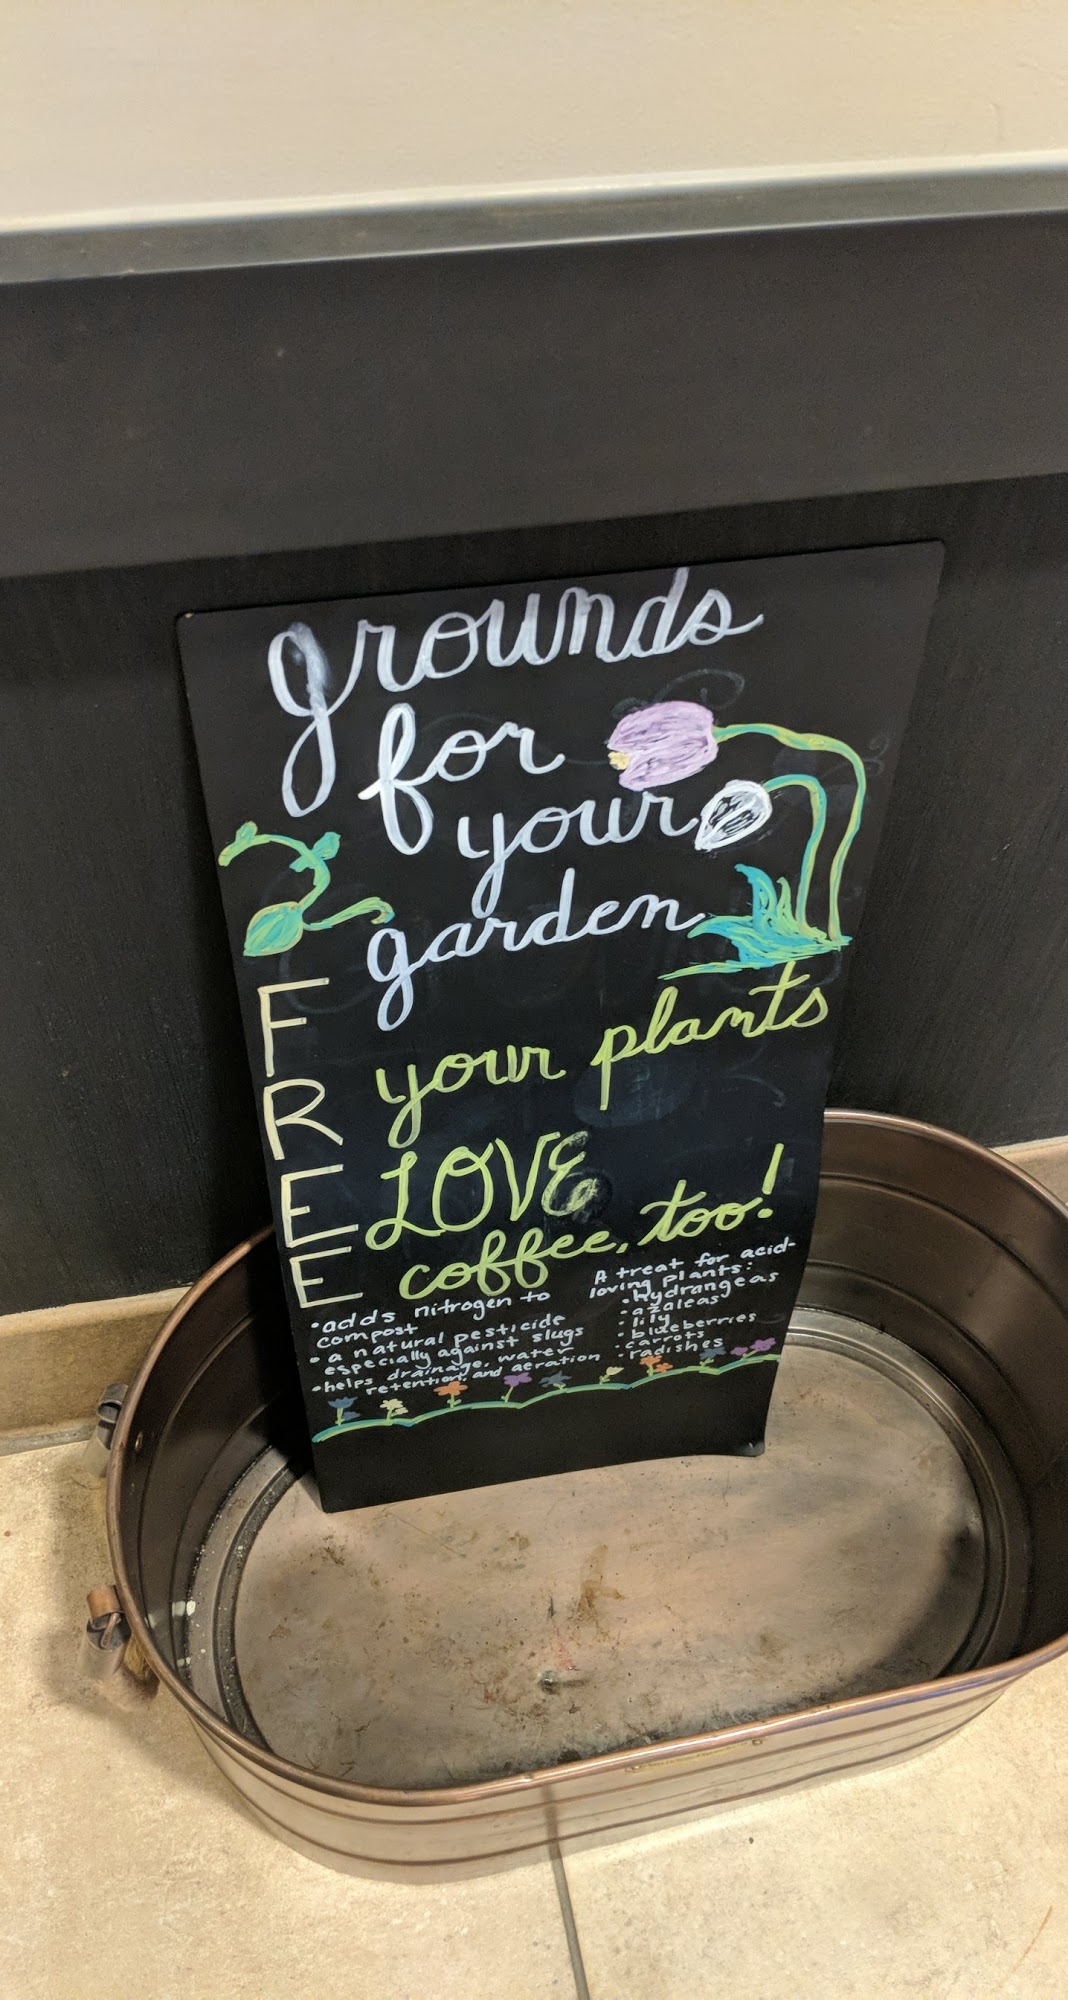 grounds
for
your
garden
FREE
your plants
LOVE
coffee, too!
• adds nitrogen to
compost
• a natural pesticide
especially against slugs
• helps drainage, water
retention, and aeration
A treat for acid-
loving plants:
• hydrangeas
• azaleas
• lily
• blueberries
• carrots
• radishes